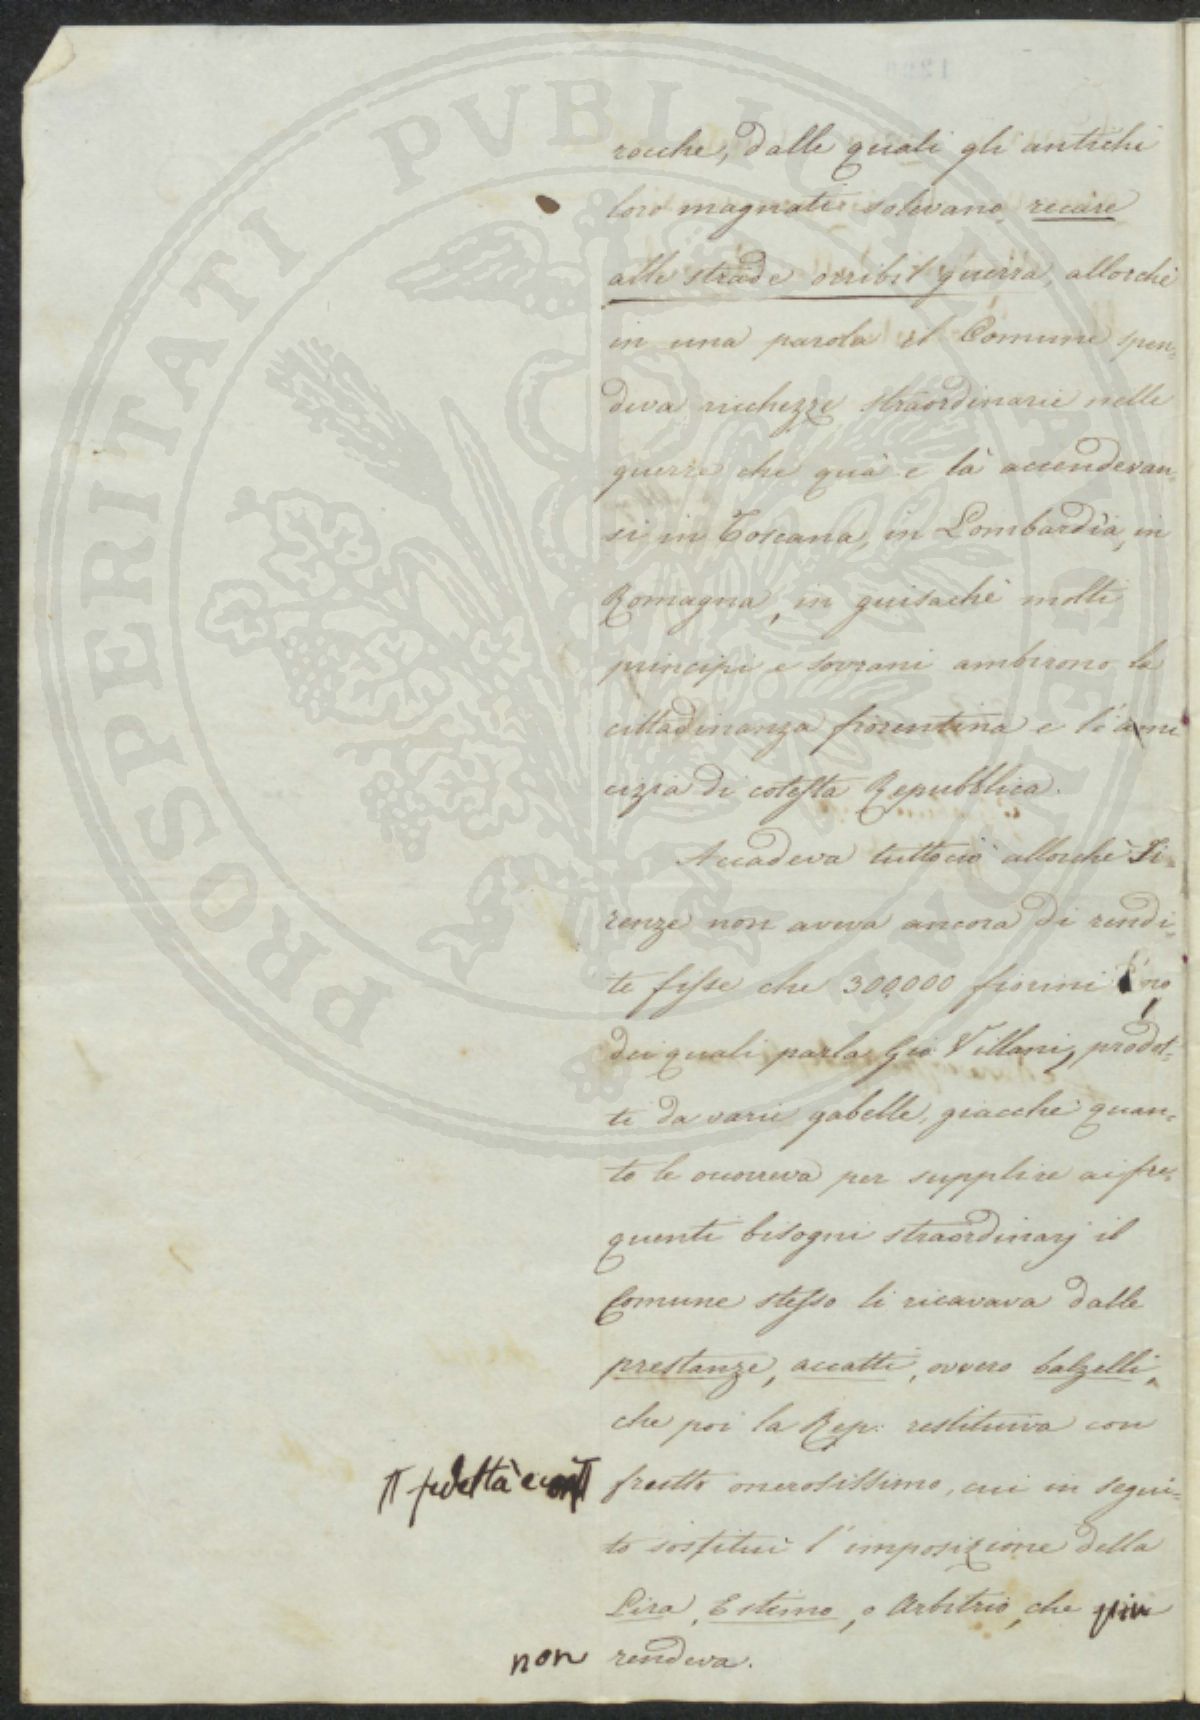 PROSPERITATI PVBLICAE AVGENDAE
rocche, dalle quali gli antichi
loro magnati solevano recare
alle strade orribil guerra, allorchè
in una parola il Comune spen-
deva ricchezze straordinarie nelle
guerre che quà e là accendevan-
si in Toscana, in Lombardia, in
Romagna, in guisachè molti
principi e sovrani ambirono la
cittadinanza fiorentina e l'ami
cizia di cotesta Repubblica.
Accadeva tuttociò allorchè Fi-
renze non aveva ancora di rendi-
te fisse che 300,000 fiorini
dei quali parla Gio Villani, prodot-
ti da varie gabelle, giacchè quan-
to le occorreva per supplire ai fre-
quenti bisogni straordinarj il
Comune stesso li ricavava dalle
prestanze, accatti, ovvero balzelli,
che poi la Rep: restituiva con
fedeltà e con
frutto onerosissimo, cui in segui-
to sostituì l'imposizione della
Lira, Estimo, o Arbitrio, che più
non rendeva.